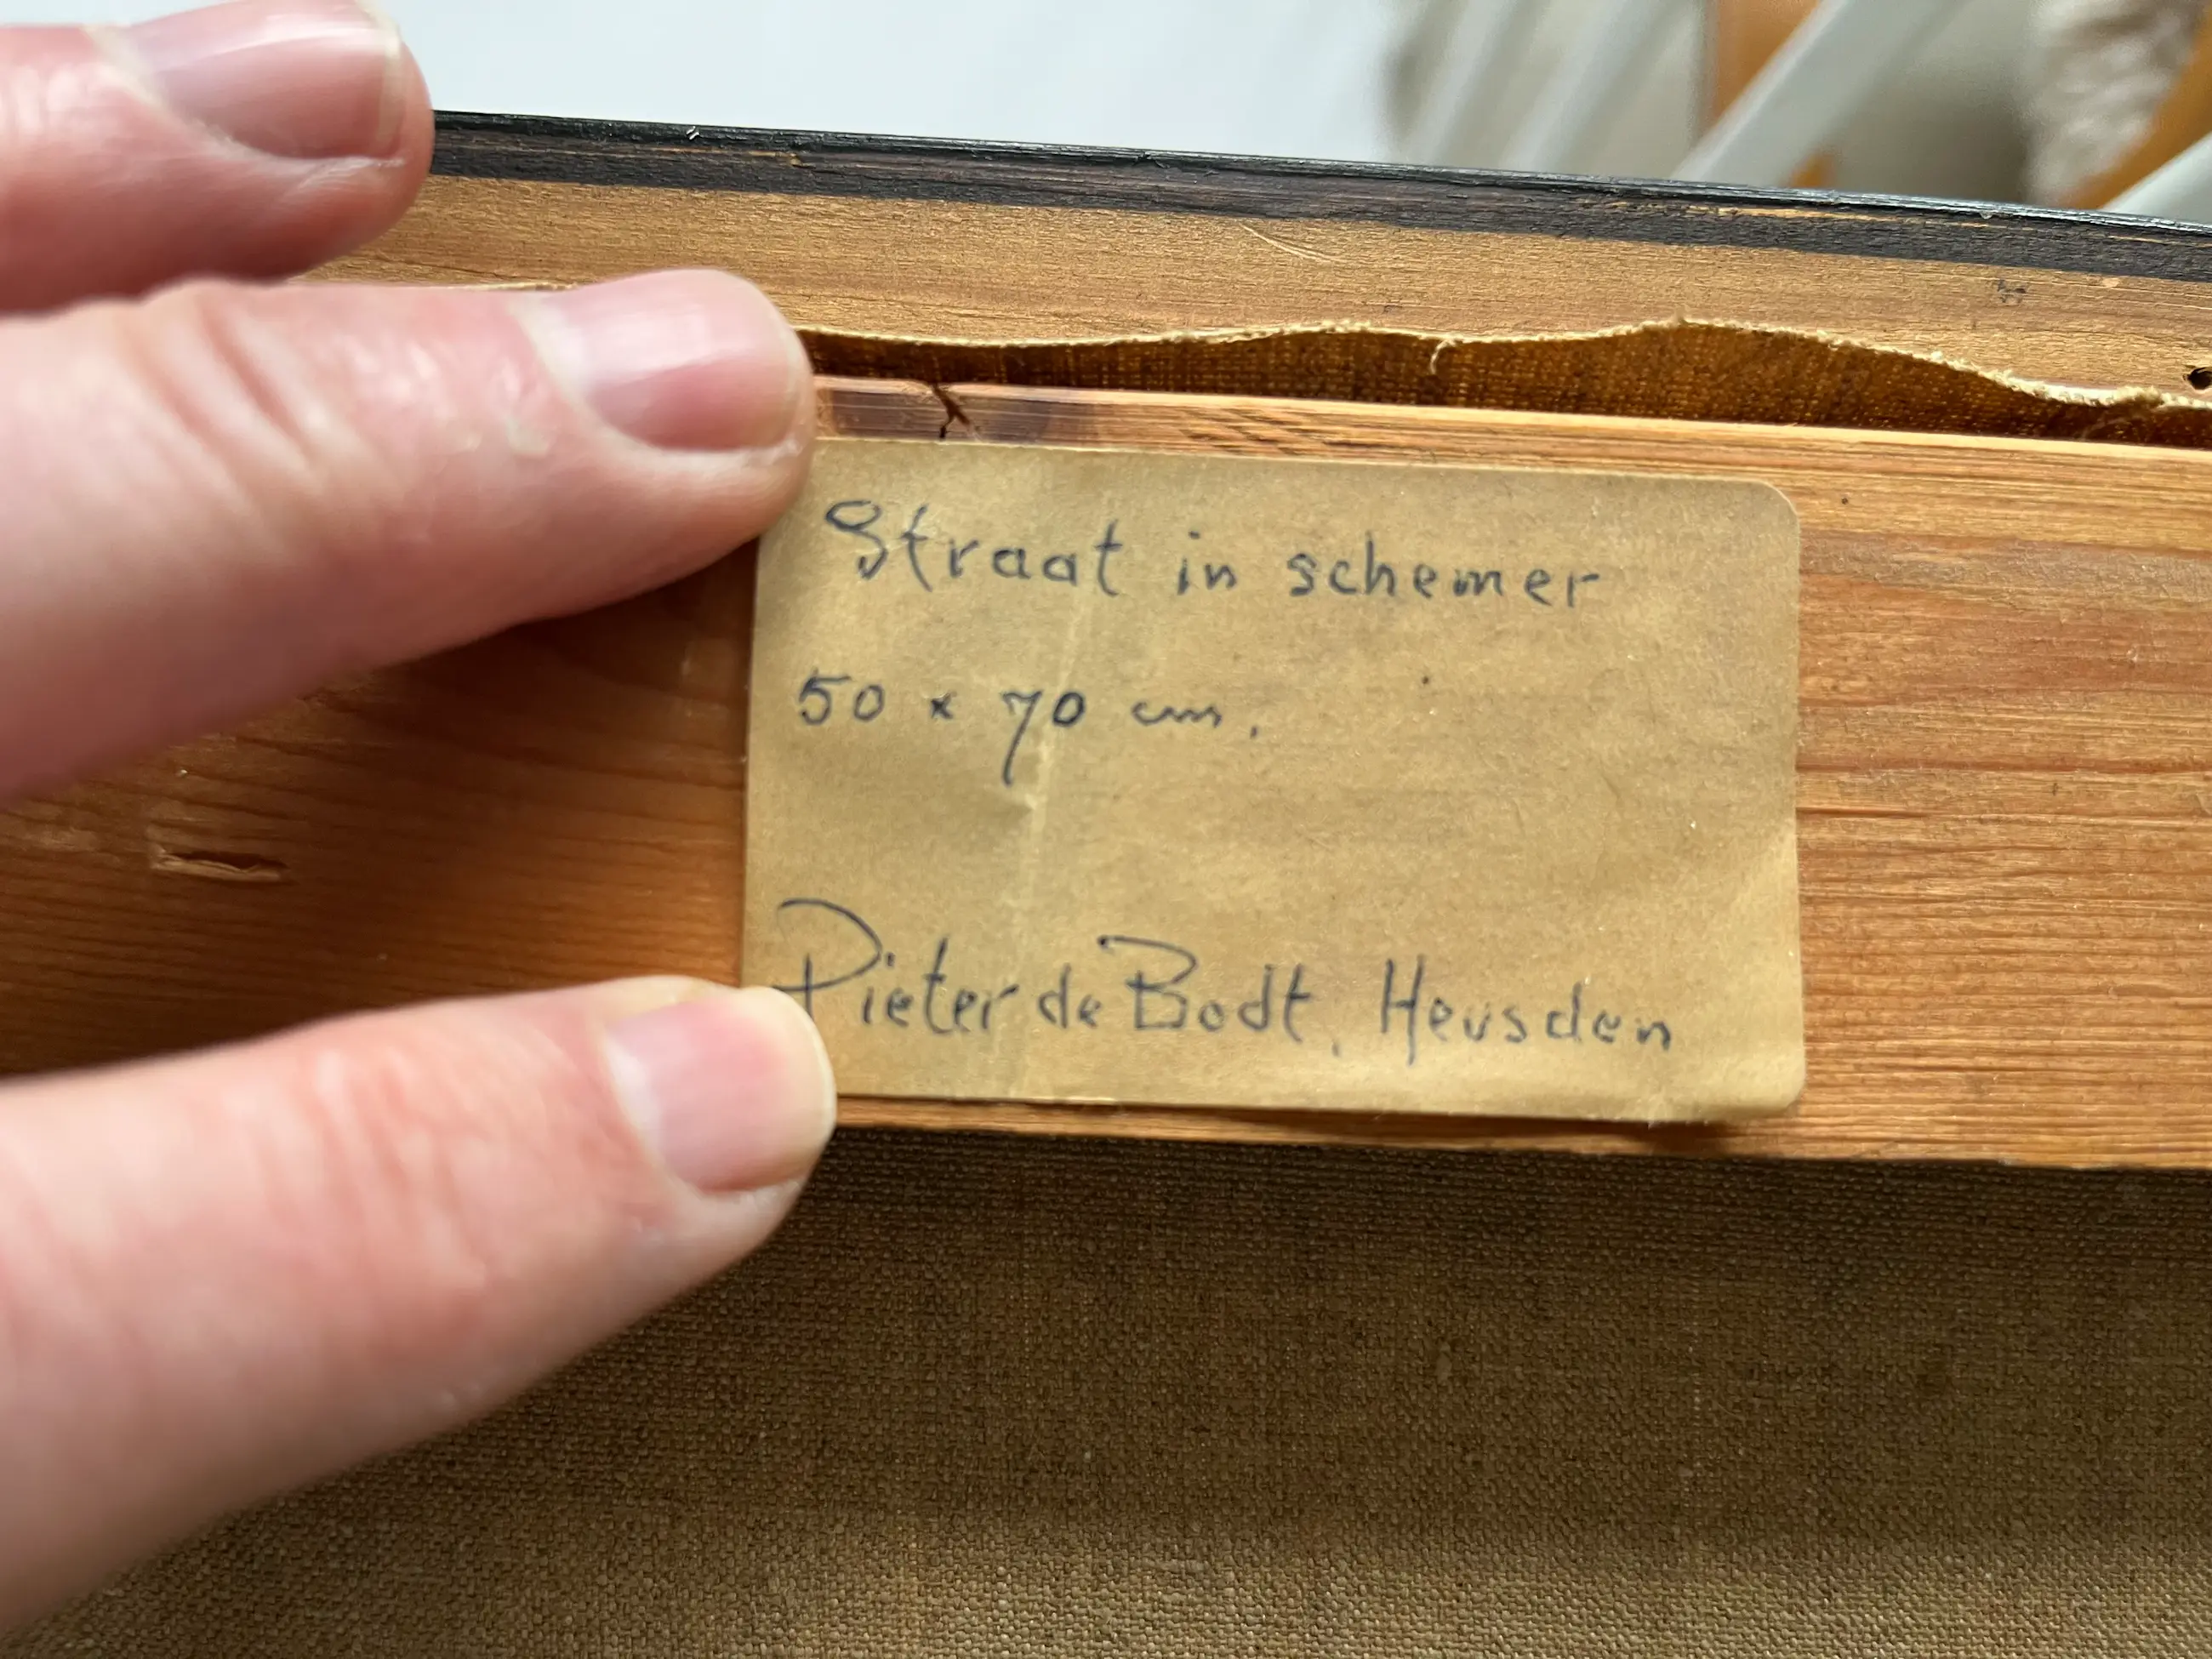 Straat in schemer
50 x 70 cm.
Pieter de Bodt, Heusden